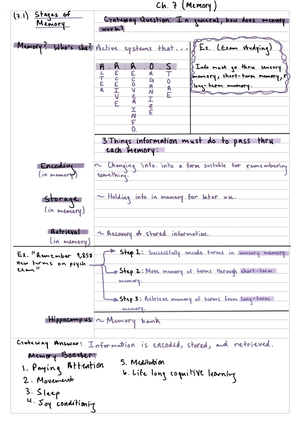 Ch. 7 (Memory)
(7.1) Stages of Memory
Gateway Question: In general, how does memory work?
Memory? Who's she?
Active systems that...
A. R. R. O. S
ALTER
RECEIVE
INFO.
ORGANIZE
STORE
Ex. (Exam studying)
Info must go thru sensory memory, short-term memory,
long-term memory.
3 Things information must do to pass thru
each Memory:
Encoding
(in memory)
~ Changing info. into a form suitable for remembering
something.
Storage
(in memory)
~ Holding into in memory for later use.
Retrieval
(in memory)
~ Recovery of stored information.
Ex. "Remember 9,856
new terms on psych
exam"
Step 1: Successfully encode terms in sensory memory.
Step 2: Move memory of terms through short-term
memory.
Step 3: Retrieve memory of terms from long-term
memory.
Hippocampus
~ Memory bank
Gateway Answer: Information is encoded, stored, and retrieved.
Memory Booster
1. Paying Attention
2. Movement
3. Sleep
4. Joy conditioning
5. Meditation
6. Life long cognitive learning